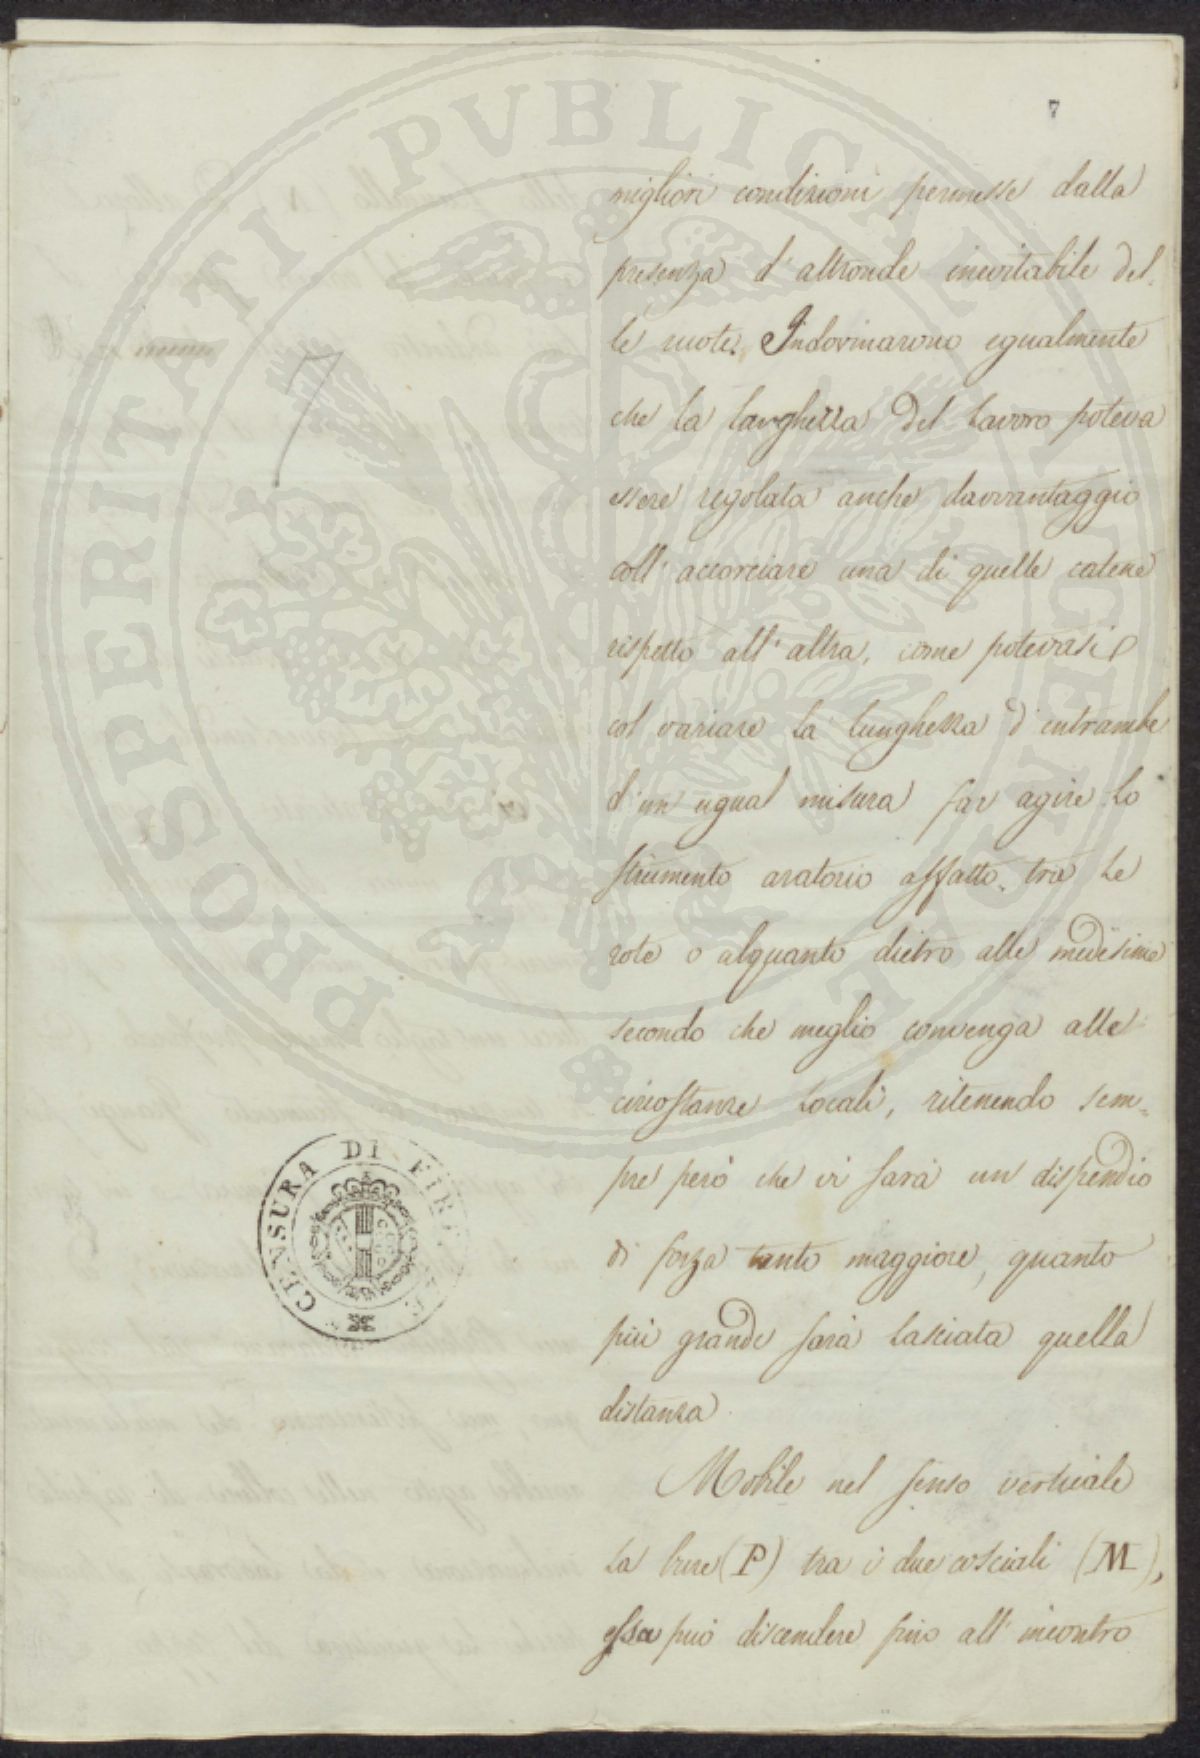 7
7
migliori condizioni permesse dalla
presenza d'altronde inevitabile del-
le ruote. Indovinarono egualmente
che la larghezza del lavoro poteva
essere regolata anche davvantaggio
coll'accorciare una di quelle catene
rispetto all'altra, come potevasi
col variare la lunghezza d'entrambe
d'un ugual misura far agire lo
strumento aratorio affatto tra le
rote o alquanto dietro alle medesime
secondo che meglio convenga alle
circostanze locali, ritenendo sem-
pre però che vi sarà un dispendio
di forza tanto maggiore, quanto
più grande sarà lasciata quella
distanza.
Mobile nel senso verticale
la bure (P) tra i due cosciali (M),
essa può discendere fino all'incontro
CENSURA DI FIRENZE
PROSPERITATI PVBLICAE AVGENDAE